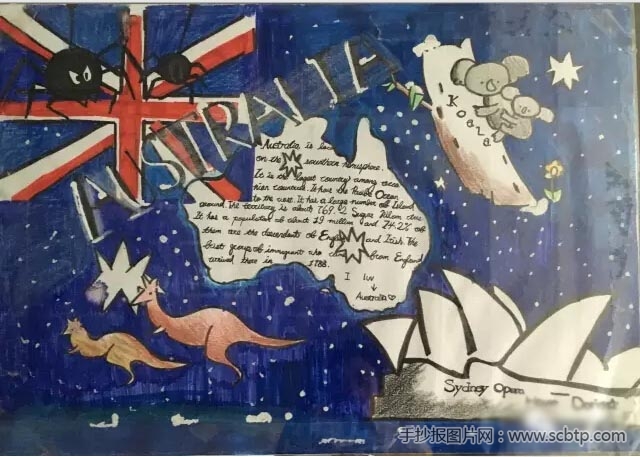 AUSTRALIA
Koala
Australia is
on the southern hemisphere.
It is the largest country among
Ocean
to the west. It has a large number of Island
around. The territory is about 769.
It has a population of about 19 million and 74.2% of
them are the descendants of and Irish. The
first group of immigrant who from England
arrived there in 1788.
I luv
↓
Australia♡
Sydney Opera
手抄报图片网：www.scbtp.com